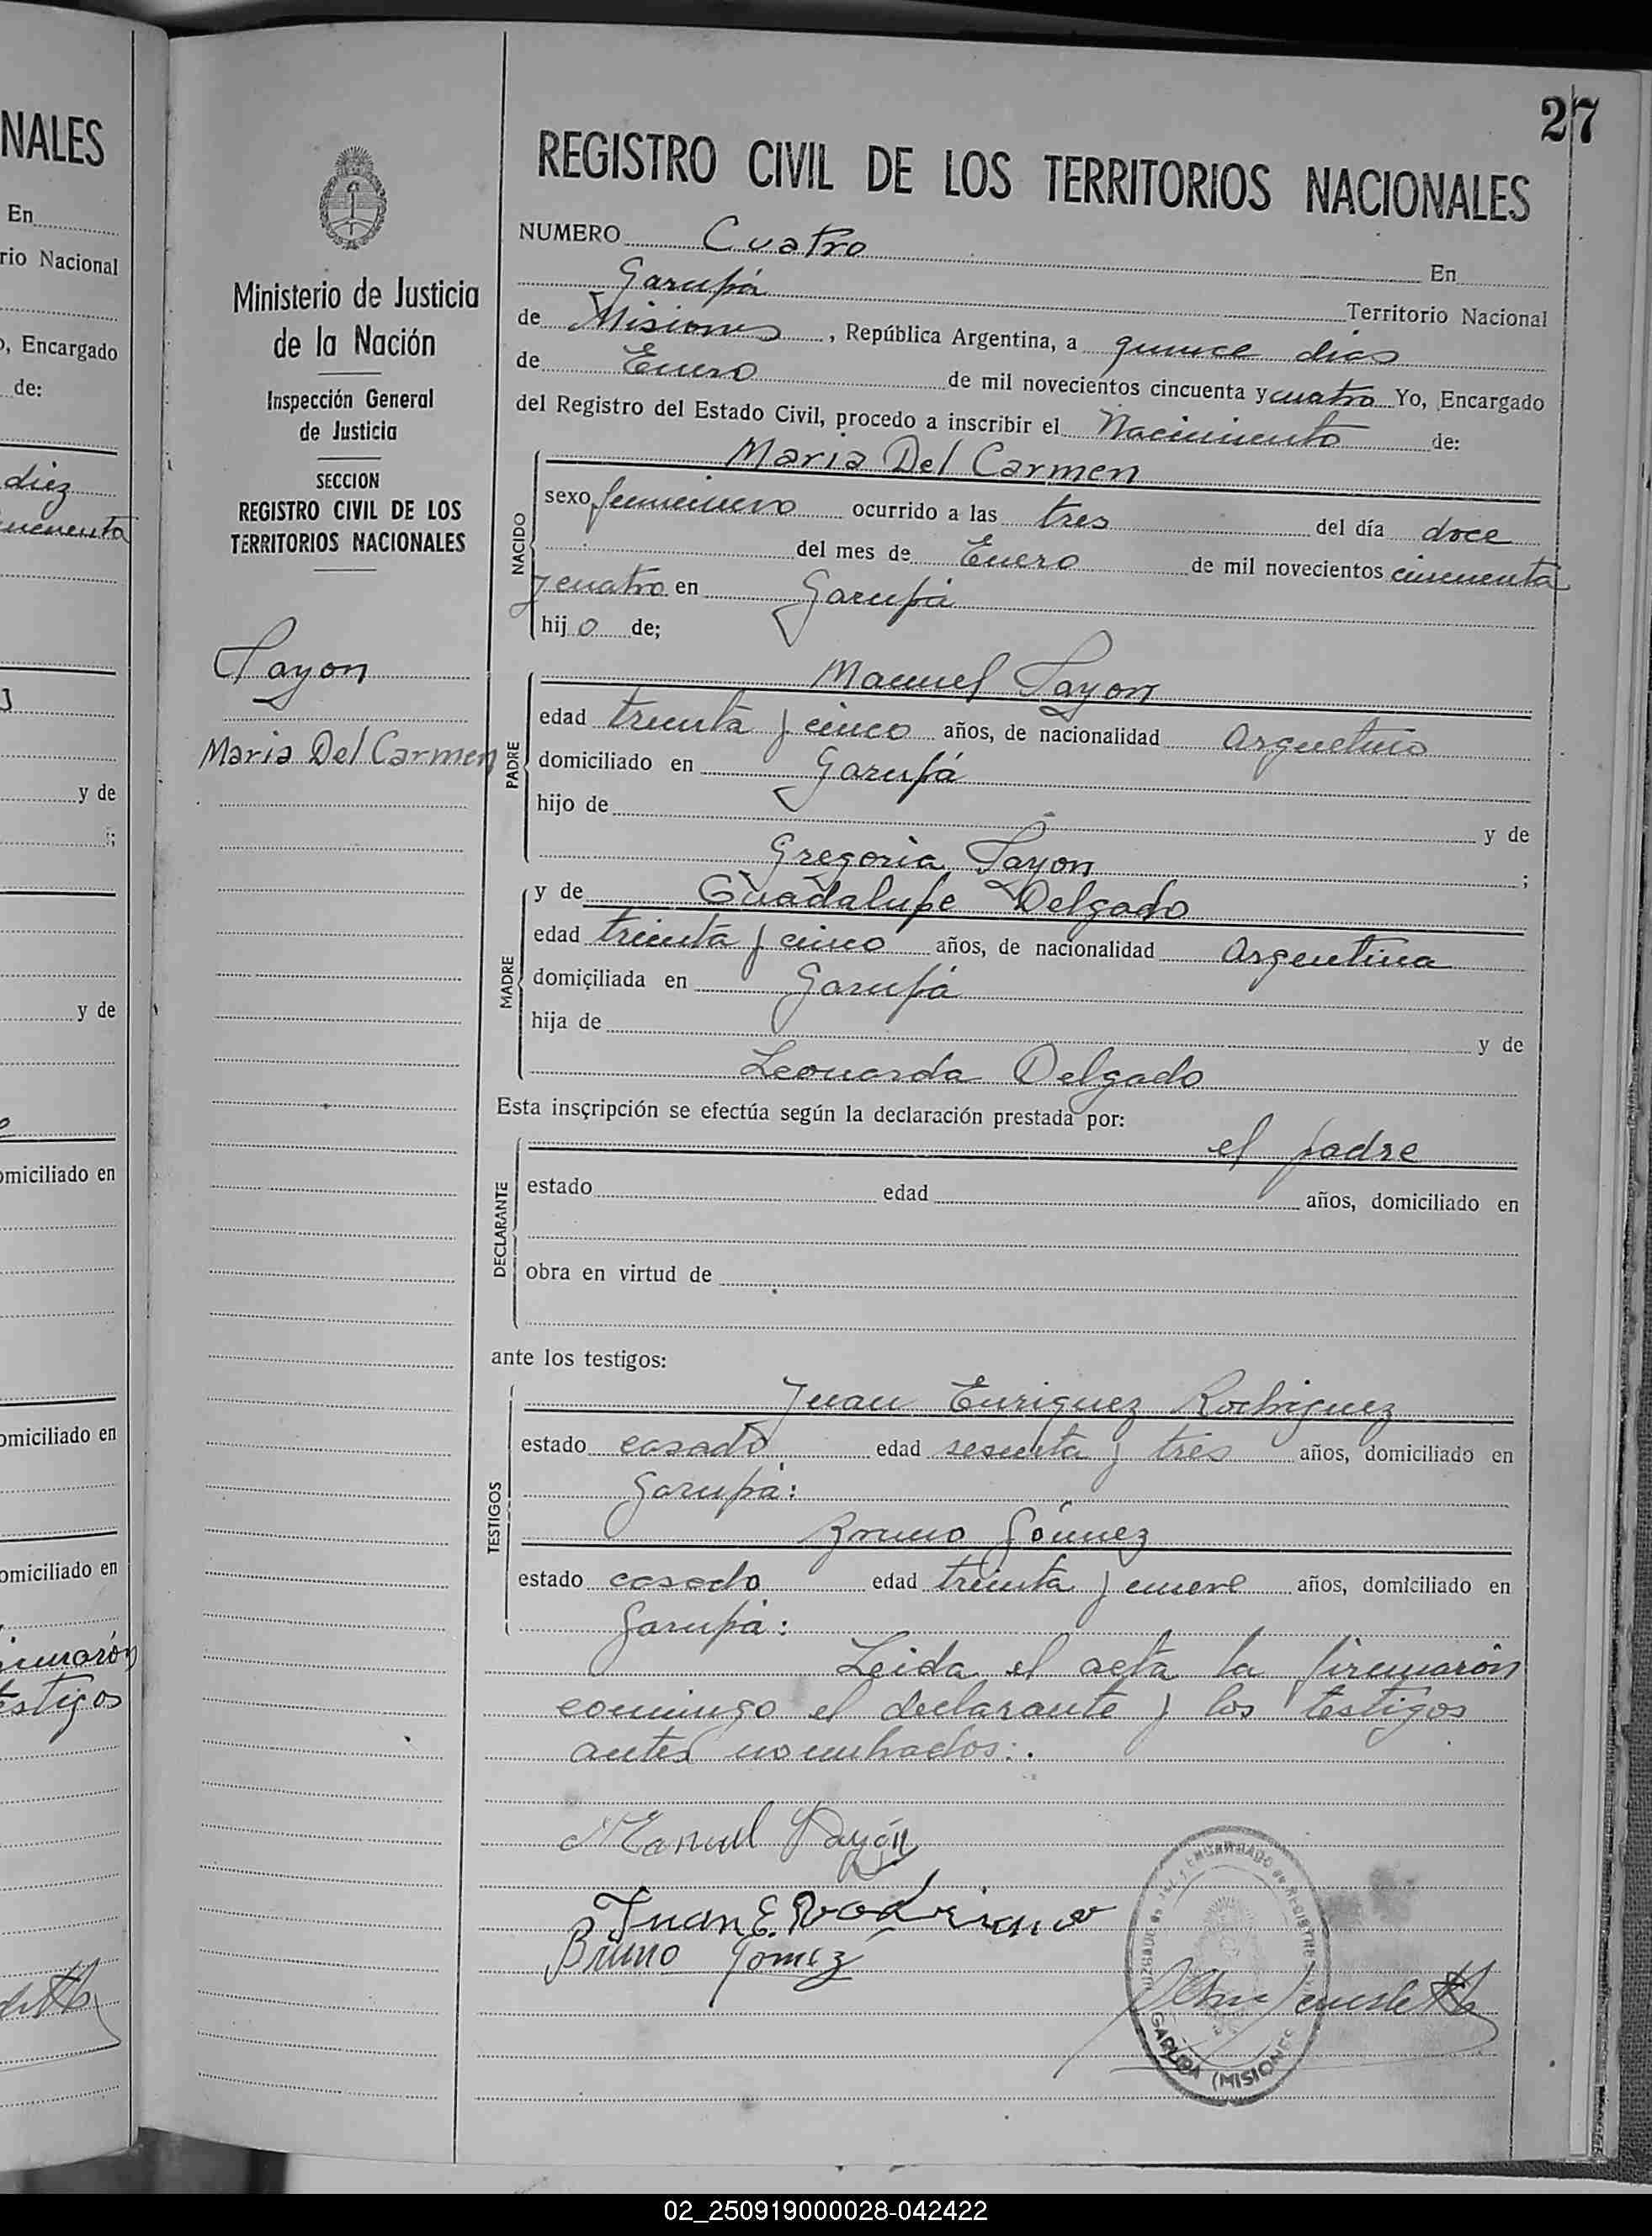 27
NALES
En
rio Nacional
o, Encargado
de:
diez
y de
y de
omiciliado en
omiciliado en
omiciliado en
testigos
Ministerio de Justicia
de la Nación
Inspección General
de Justicia
SECCION
REGISTRO CIVIL DE LOS
TERRITORIOS NACIONALES
Payon
Maria Del Carmen
REGISTRO CIVIL DE LOS TERRITORIOS NACIONALES
NUMERO Cuatro En
Garupá Territorio Nacional
de Misiones, República Argentina, a quince dias
de Enero de mil novecientos cincuenta y cuatro Yo, Encargado
del Registro del Estado Civil, procedo a inscribir el Nacimiento de:
Maria Del Carmen
NACIDO
sexo femenino ocurrido a las tres del día doce
del mes de Enero de mil novecientos cincuenta
y cuatro en Garupá
hijo de;
Manuel Payon
PADRE
edad treinta y cinco años, de nacionalidad Argentino
domiciliado en Garupá
hijo de y de
Gregoria Payon ;
y de Guadalupe Delgado
MADRE
edad treinta y cinco años, de nacionalidad Argentina
domiciliada en Garupá
hija de y de
Leonarda Delgado
Esta inscripción se efectúa según la declaración prestada por:
el padre
DECLARANTE
estado edad años, domiciliado en
obra en virtud de
ante los testigos:
Juan Enriquez Rodriguez
TESTIGOS
estado casado edad sesenta y tres años, domiciliado en
Garupá:
Bruno Gómez
estado casado edad treinta y nueve años, domiciliado en
Garupá:
Leida el acta la firmarón
conmingo el declarante y los testigos
antes nombrados:.
Manuel Payón
Juan E. Rodriguez
Bruno Gomez
GARUPA (MISIONES
02_250919000028-042422